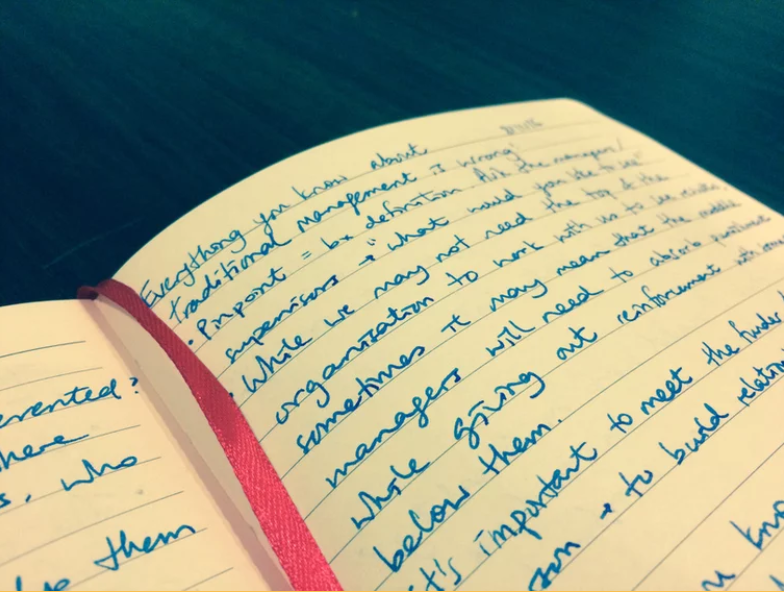 erented?
here
s, who
them
Everything you know about
traditional management is wrong'
• Pinpoint = bx definition. Ask the managers/
supervisors → "what would you like to see"
• While we may not need the top of the
organisation to work with us to see results,
sometimes it may mean that the middle
managers will need to absorb punishment
while giving out reinforcement with
below them.
it's important to meet the funder
→ to build relation
know